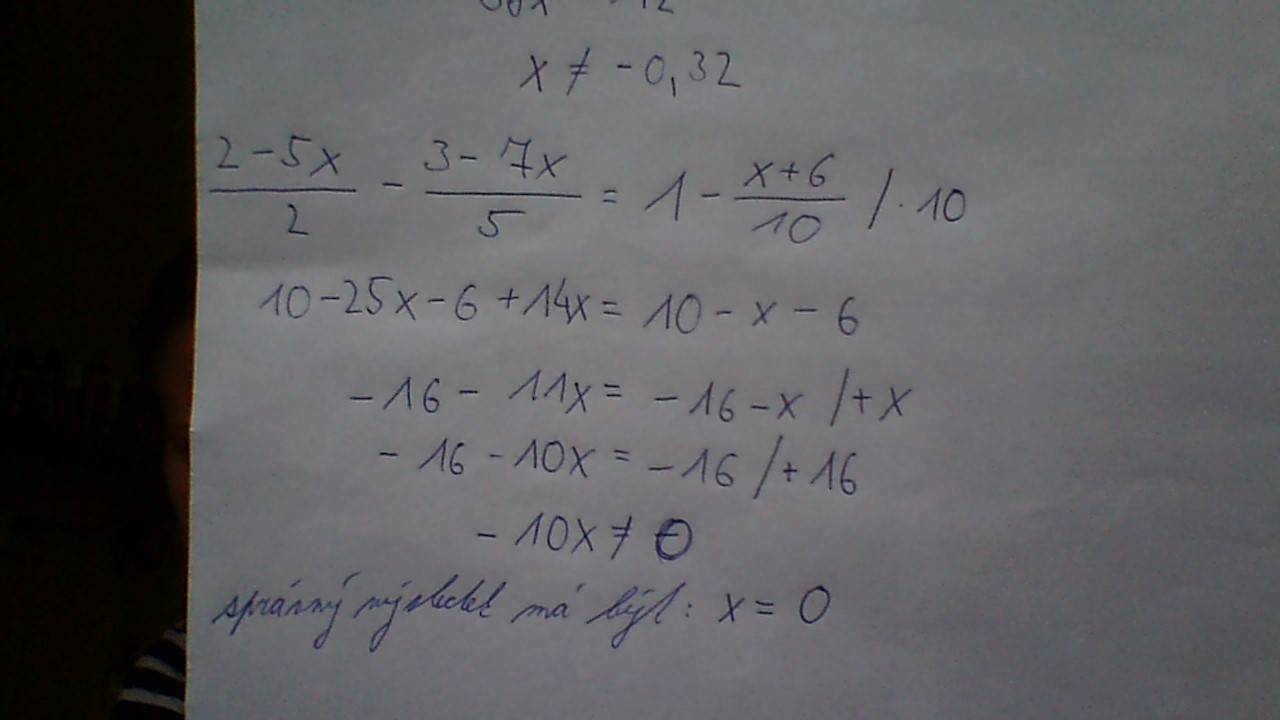 x ≠ -0,32
2-5x/2 - 3-7x/5 = 1 - x+6/10 / · 10
10-25x-6+14x= 10-x-6
-16- 11x= -16-x /+x
-16-10x= -16 /+16
-10x≠ 0
správný výsledek má být: x= 0